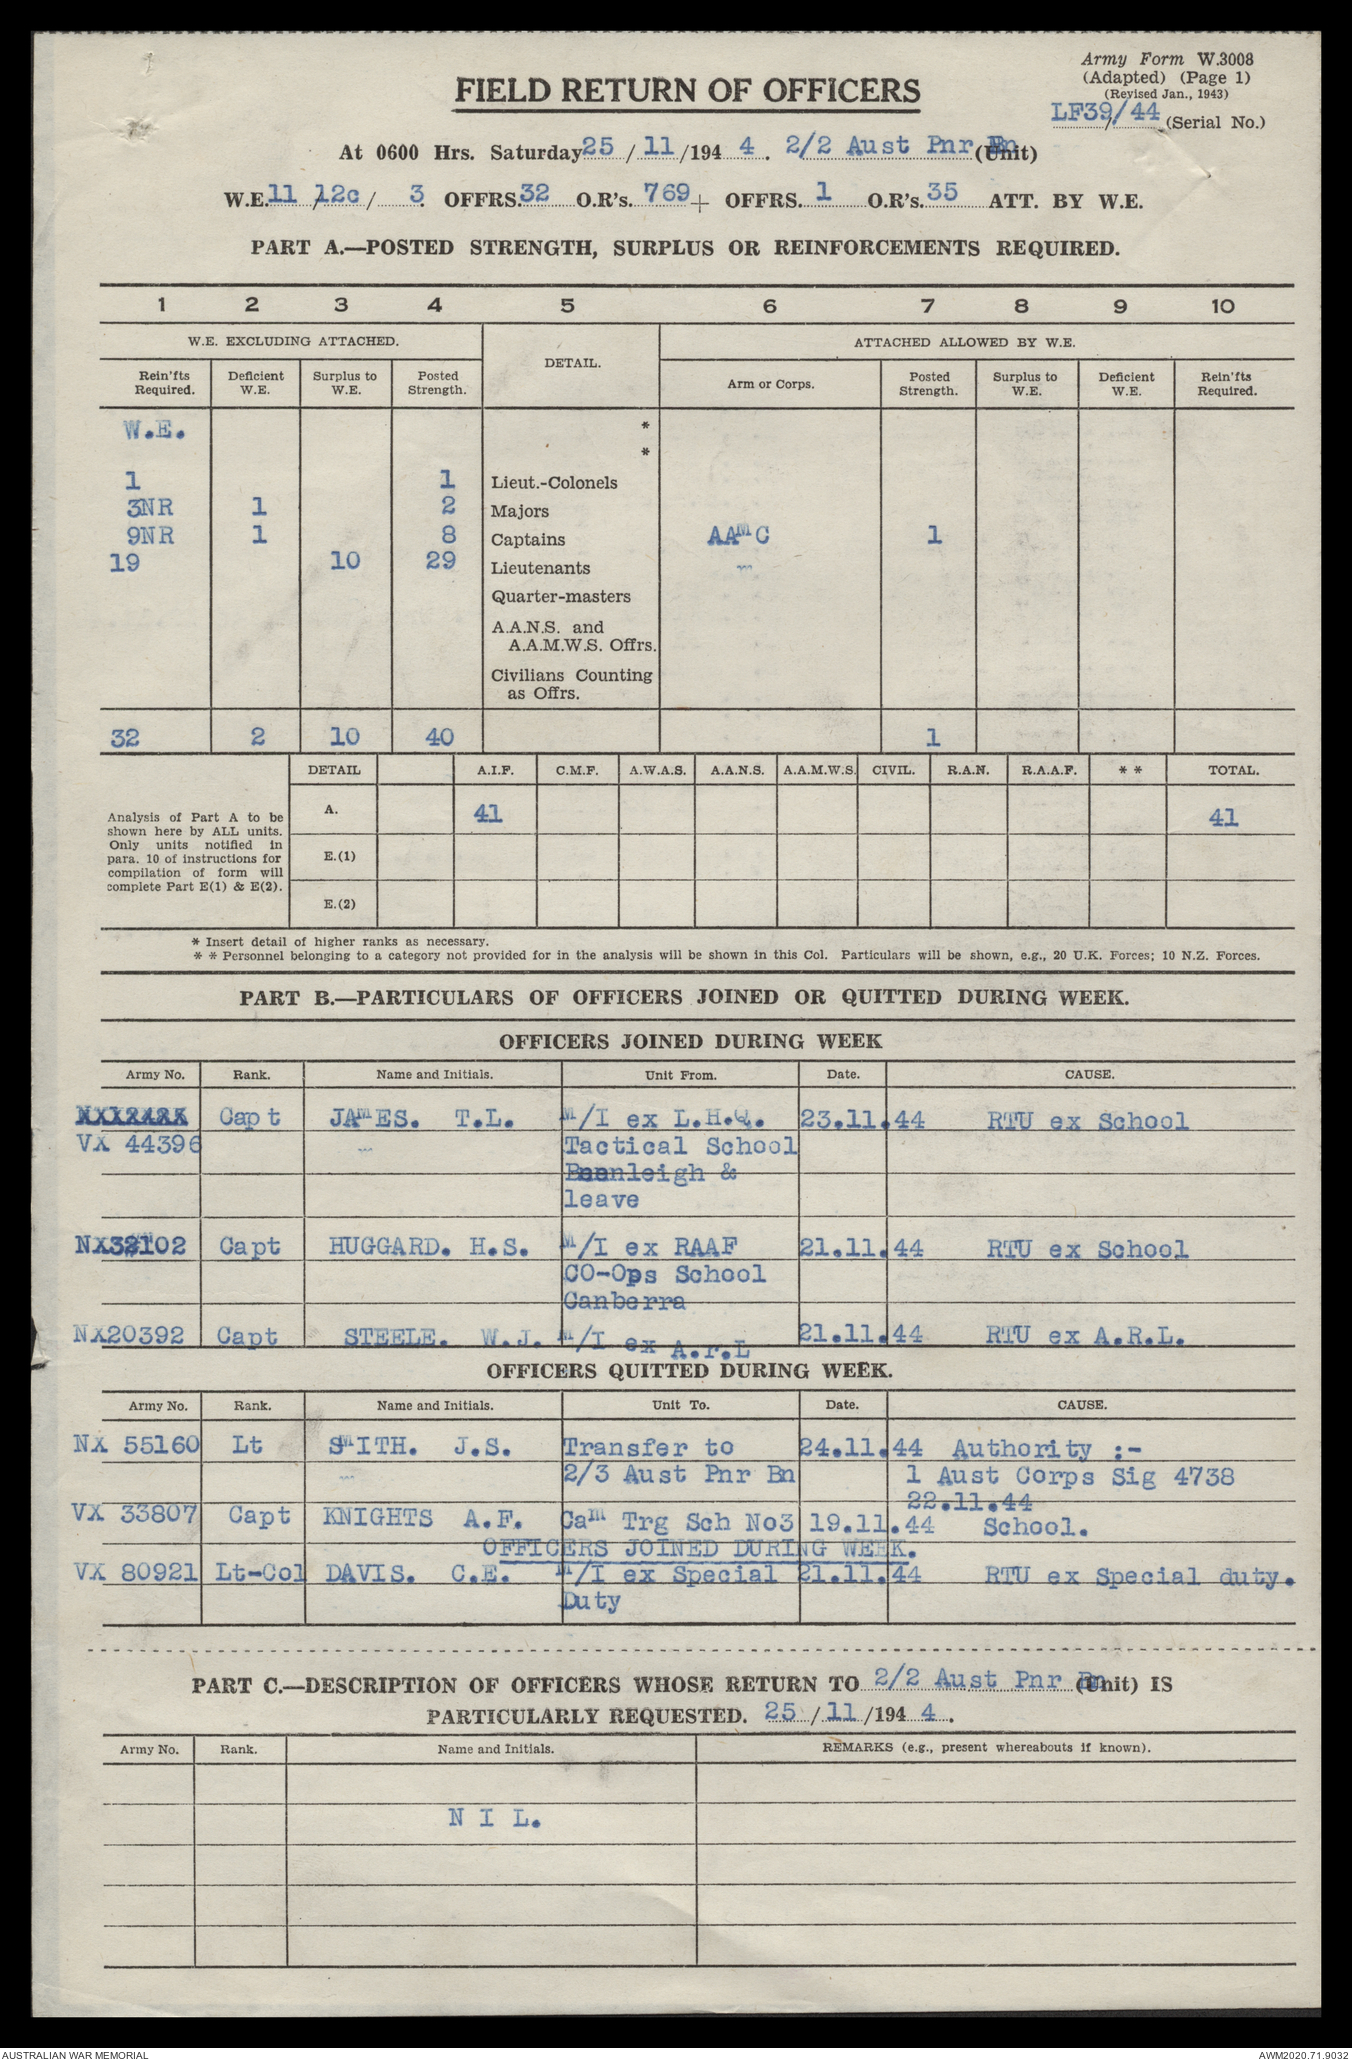 Army Form W.3008
(Adapted) (Page 1)
(Revised Jan., 1943)
LF39/44 (Serial No.)
FIELD RETURN OF OFFICERS
At 0600 Hrs. Saturday 25/11/1944. 2/2 Aust Pnr Bn (Unit)
W.E. 11/12c/3 OFFRS. 32 O.R's. 769 + OFFRS. 1 O.R's. 35 ATT. BY W.E.
PART A.—POSTED STRENGTH, SURPLUS OR REINFORCEMENTS REQUIRED.
1 2 3 4 5 6 7 8 9 10
W.E. EXCLUDING ATTACHED. DETAIL. ATTACHED ALLOWED BY W.E.
Rein'fts Required. Deficient W.E. Surplus to W.E. Posted Strength. Arm or Corps. Posted Strength. Surplus to W.E. Deficient W.E. Rein'fts Required.
W.E. *
*
1 1 Lieut.-Colonels
3NR 1 2 Majors
9NR 1 8 Captains AAMC 1
19 10 29 Lieutenants
Quarter-masters
A.A.N.S. and
A.A.M.W.S. Offrs.
Civilians Counting
as Offrs.
32 2 10 40 1
DETAIL A.I.F. C.M.F. A.W.A.S. A.A.N.S. A.A.M.W.S. CIVIL. R.A.N. R.A.A.F. * * TOTAL.
Analysis of Part A to be
shown here by ALL units.
Only units notified in
para. 10 of instructions for
compilation of form will
complete Part E(1) & E(2).
A. 41 41
E.(1)
E.(2)
* Insert detail of higher ranks as necessary.
* * Personnel belonging to a category not provided for in the analysis will be shown in this Col. Particulars will be shown, e.g., 20 U.K. Forces; 10 N.Z. Forces.
PART B.—PARTICULARS OF OFFICERS JOINED OR QUITTED DURING WEEK.
OFFICERS JOINED DURING WEEK
Army No. Rank. Name and Initials. Unit From. Date. CAUSE.
Capt JAMES. T.L. M/I ex L.H.Q. 23.11.44 RTU ex School
VX 44396 Tactical School
Beenleigh &
leave
NX32102 Capt HUGGARD. H.S. M/I ex RAAF 21.11.44 RTU ex School
CO-Ops School
Canberra
NX20392 Capt STEELE. W.J. M/I ex A.r.L 21.11.44 RTU ex A.R.L.
OFFICERS QUITTED DURING WEEK.
Army No. Rank. Name and Initials. Unit To. Date. CAUSE.
NX 55160 Lt SMITH. J.S. Transfer to 24.11.44 Authority :-
2/3 Aust Pnr Bn 1 Aust Corps Sig 4738
22.11.44
VX 33807 Capt KNIGHTS A.F. Cam Trg Sch No3 19.11.44 School.
OFFICERS JOINED DURING WEEK.
VX 80921 Lt-Col DAVIS. C.E. M/I ex Special 21.11.44 RTU ex Special duty.
Duty
PART C.—DESCRIPTION OF OFFICERS WHOSE RETURN TO 2/2 Aust Pnr Bn (Unit) IS
PARTICULARLY REQUESTED. 25/11/1944.
Army No. Rank. Name and Initials. REMARKS (e.g., present whereabouts if known).
N I L.
AUSTRALIAN WAR MEMORIAL AWM2020.71.9032